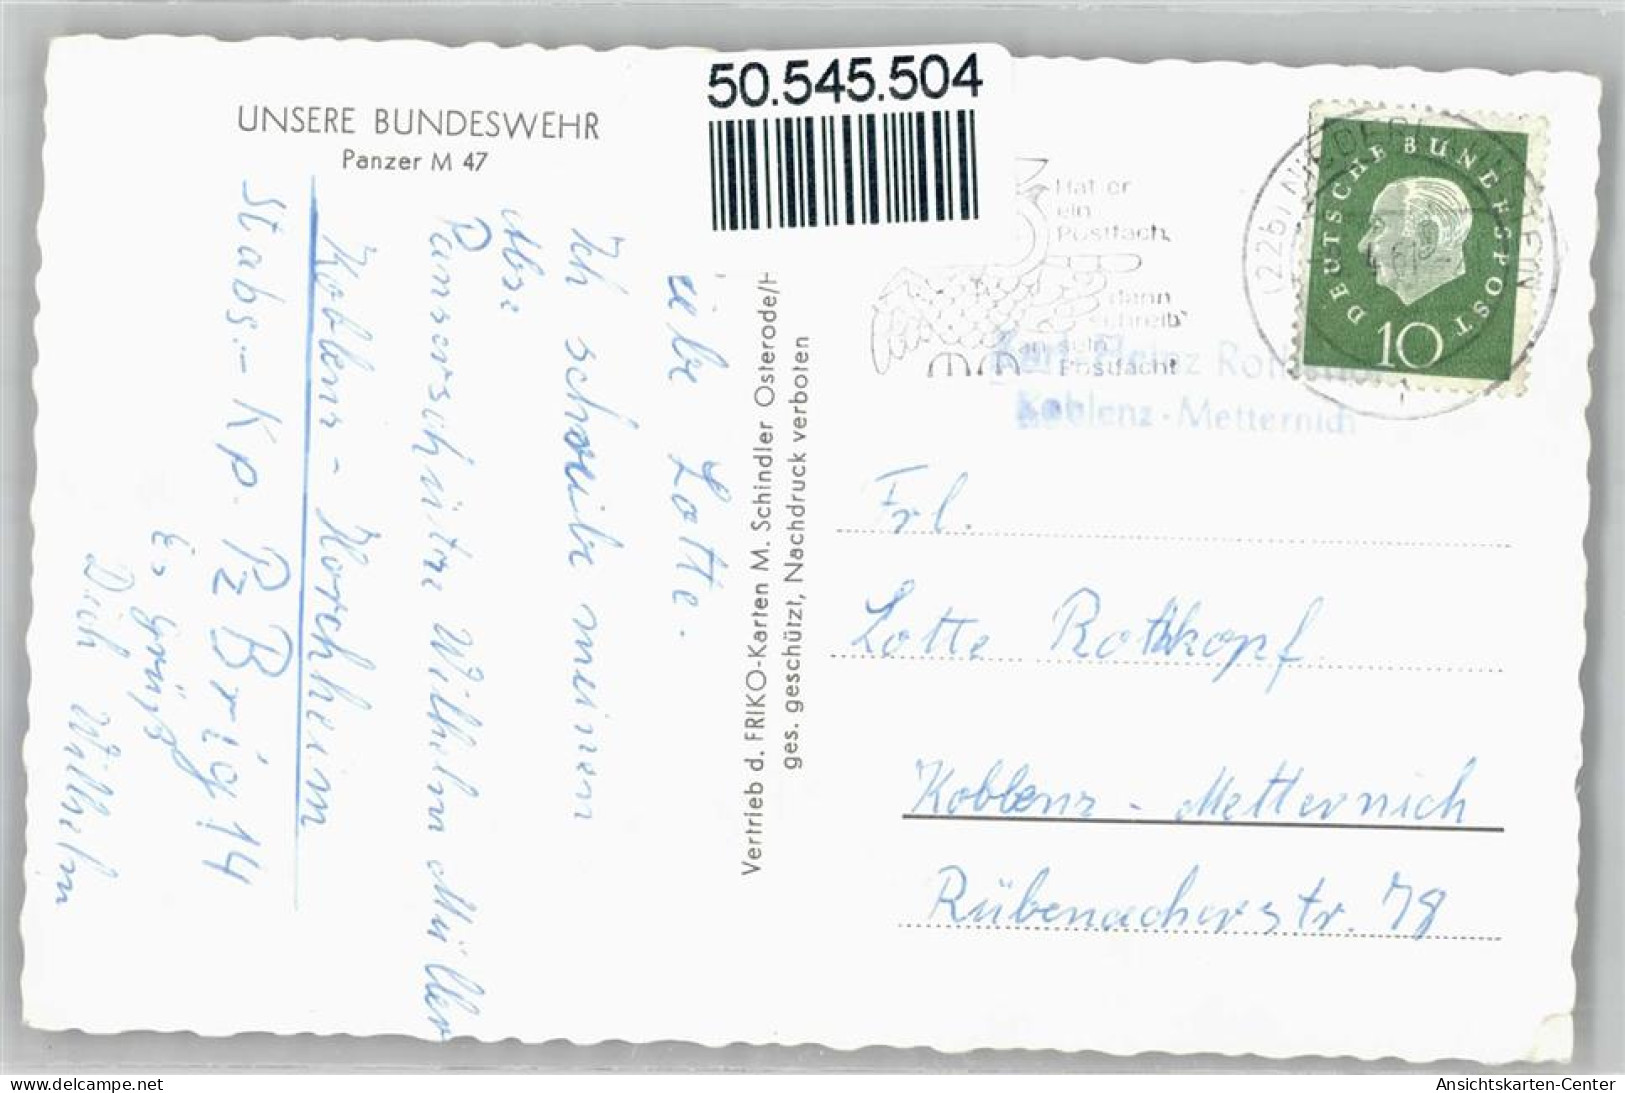 UNSERE BUNDESWEHR
Panzer M 47
50.545.504
Hat er
ein
Postfach,
dann
schreib'
an sein
Postfach!
DEUTSCHE BUNDESPOST
10
Heinz
Koblenz-Metternich
Lotte.
Ich schreibe meinen
Abs:
Panzerschütze Wilhelm Müller
Koblenz - Horchheim
Stabs.- Kp. Pz Brig 14
Es grüßt
Dich Wilhelm
Vertrieb d. FRIKO-Karten M. Schindler Osterode/H
ges. geschützt, Nachdruck verboten
Frl.
Lotte Rothkopf
Koblenz - Metternich
Rübenacherstr. 78
delcampe.net
Ansichtskarten-Center